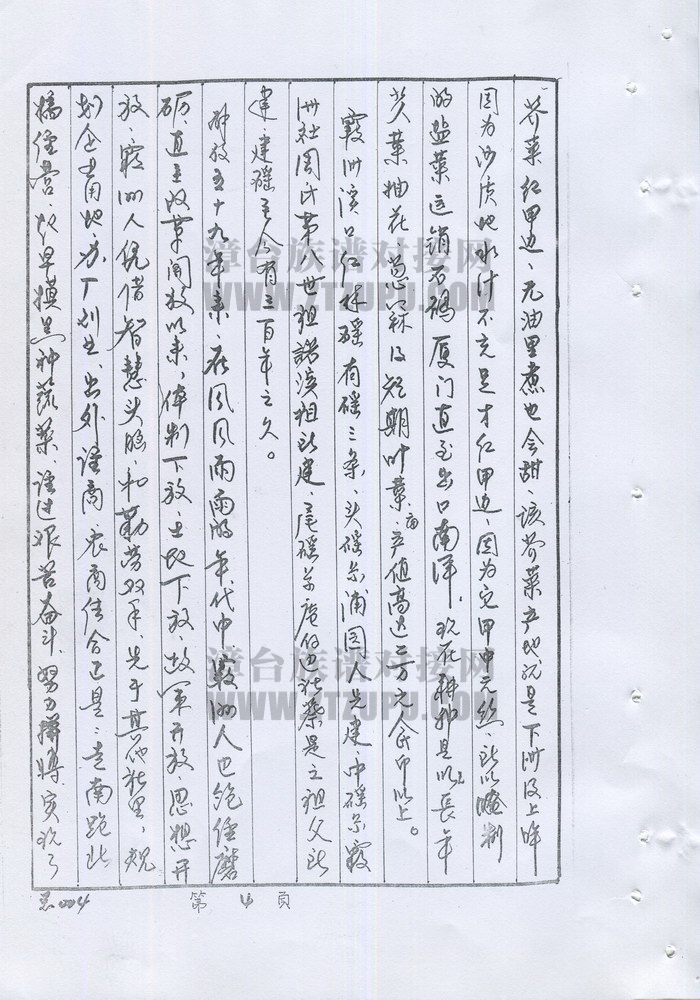 芥菜红甲边、无油里煮也会甜、该芥菜产地就是下洲及上洋
因为沙质地水汁不充足才红甲边、因为它甲中无丝、所以醃制
的盐菜远销石码厦门直至出口南洋，现在种是以长年
芥菜抽花葱蒜及短期叶菜、亩产值高达二万元人民币以上。
霞洲溪口仁林磘有磘三条、头磘系浦园人先建、中磘系霞
洲社周氏第八世祖諾演祖所建、尾磘系庵仔边社蔡是之祖父所
建，建磘至今有三百年之久。
解放五十九年来，在风风雨雨的年代中，霞洲人巴饱经磨
砺，直至改革开放以来，体制下放，土地下放，改革开放思想开
放，霞洲人凭借智慧头脑，和勤劳双手，先于其他社里，规
划企业用地办厂创业，出外经商，农商结合巴是：走南跑北
搞经营，起早摸黑种蔬菜，经过艰苦奋斗，努力拼搏实现了
第 4 页
总004
漳台族谱对接网
WWW.ZTZUPU.COM
漳台族谱对接网
WWW.ZTZUPU.COM